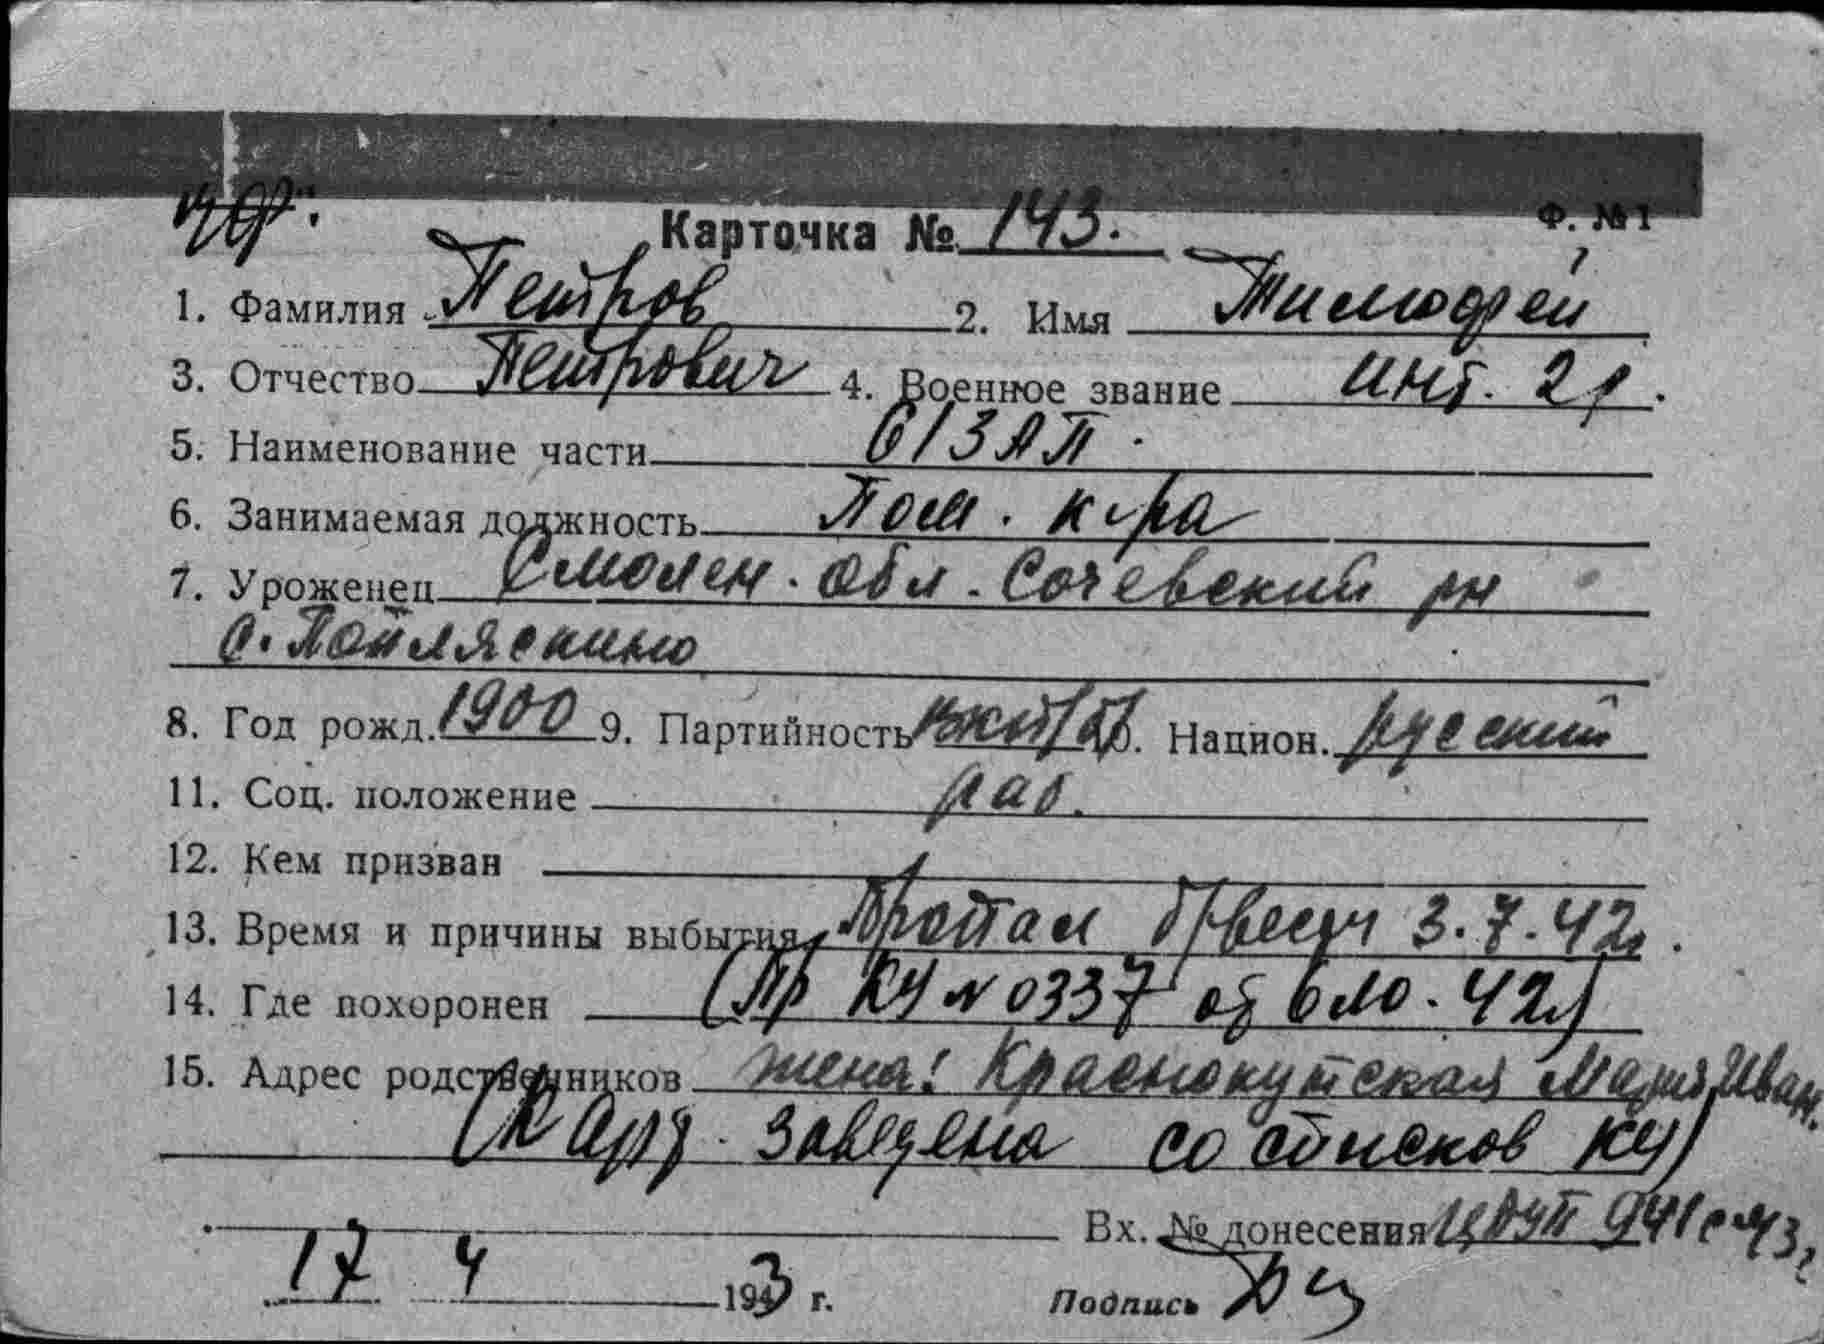 Ф. №1
Карточка № 143.
1. Фамилия Петров 2. Имя Тимофей
3. Отчество Петрович 4. Военное звание инт. 2р.
5. Наименование части 613АП.
6. Занимаемая должность Пом. к-ра
7. Уроженец Смолен. обл. Сочевский рн
с. Пойляскино
8. Год рожд. 1900 9. Партийность ВКП/б/ 10. Национ. русский
11. Соц. положение раб.
12. Кем призван
13. Время и причины выбытия Пропал б/вести 3.7.42г.
14. Где похоронен (Пр КУ № 0337 от 6.10.42г)
15. Адрес родственников жена: Краснокутская Мария Иван.
(Карт. заведена со списков КУ)
Вх. № донесения 941с 43г
17 4 1943 г. Подпись